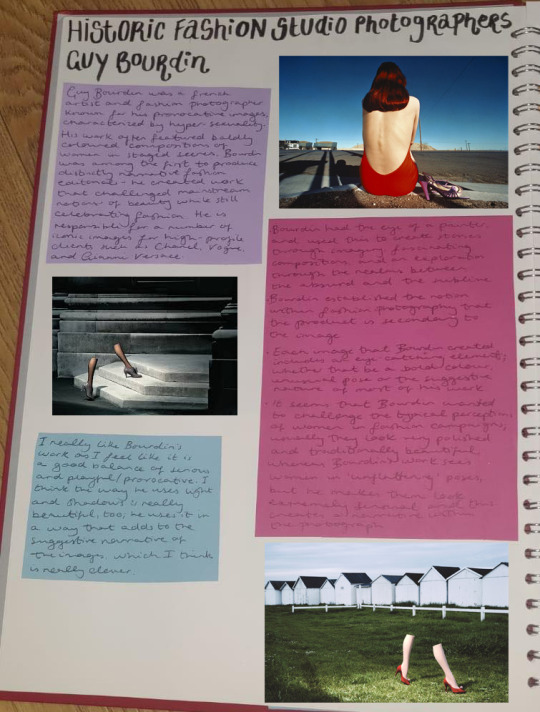 HISTORIC FASHION STUDIO PHOTOGRAPHERS
GUY BOURDIN
Guy Bourdin was a french
artist and fashion photographer
known for his provocative images,
characterized by hyper-sexuality.
His work often featured boldly
coloured compositions of
women in staged scenes. Bourdin
was among the first to produce
distinctly narrative fashion
editorial - he created work
that challenged mainstream
notions of beauty while still
celebrating fashion. He is
responsible for a number of
iconic images for high-profile
clients such as: Chanel, Vogue,
and Gianni Versace.
Bourdin had the eye of a painter,
and used this to create stories
through imagery, fascinating
compositions and an exploration
through the realms between
the absurd and the sublime.
· Bourdin established the notion
within fashion photography that
the product is secondary to
the image
· Each image that Bourdin created
includes an eye catching element;
whether that be a bold colour,
unusual pose or the suggestive
nature of most of his work.
· It seems that Bourdin wanted
to challenge the typical perception
of women in fashion campaigns;
usually they look very polished
and traditionally beautiful,
whereas Bourdin's work sees
women in 'unflattering' poses,
but he makes them look
extremely sensual and this
creates a narrative within
the photograph.
I really like Bourdin's
work as I feel like it is
a good balance of serious
and playful/provocative. I
think the way he uses light
and shadows is really
beautiful, too; he uses it in
a way that adds to the
suggestive narrative of
the images, which I think
is really clever.